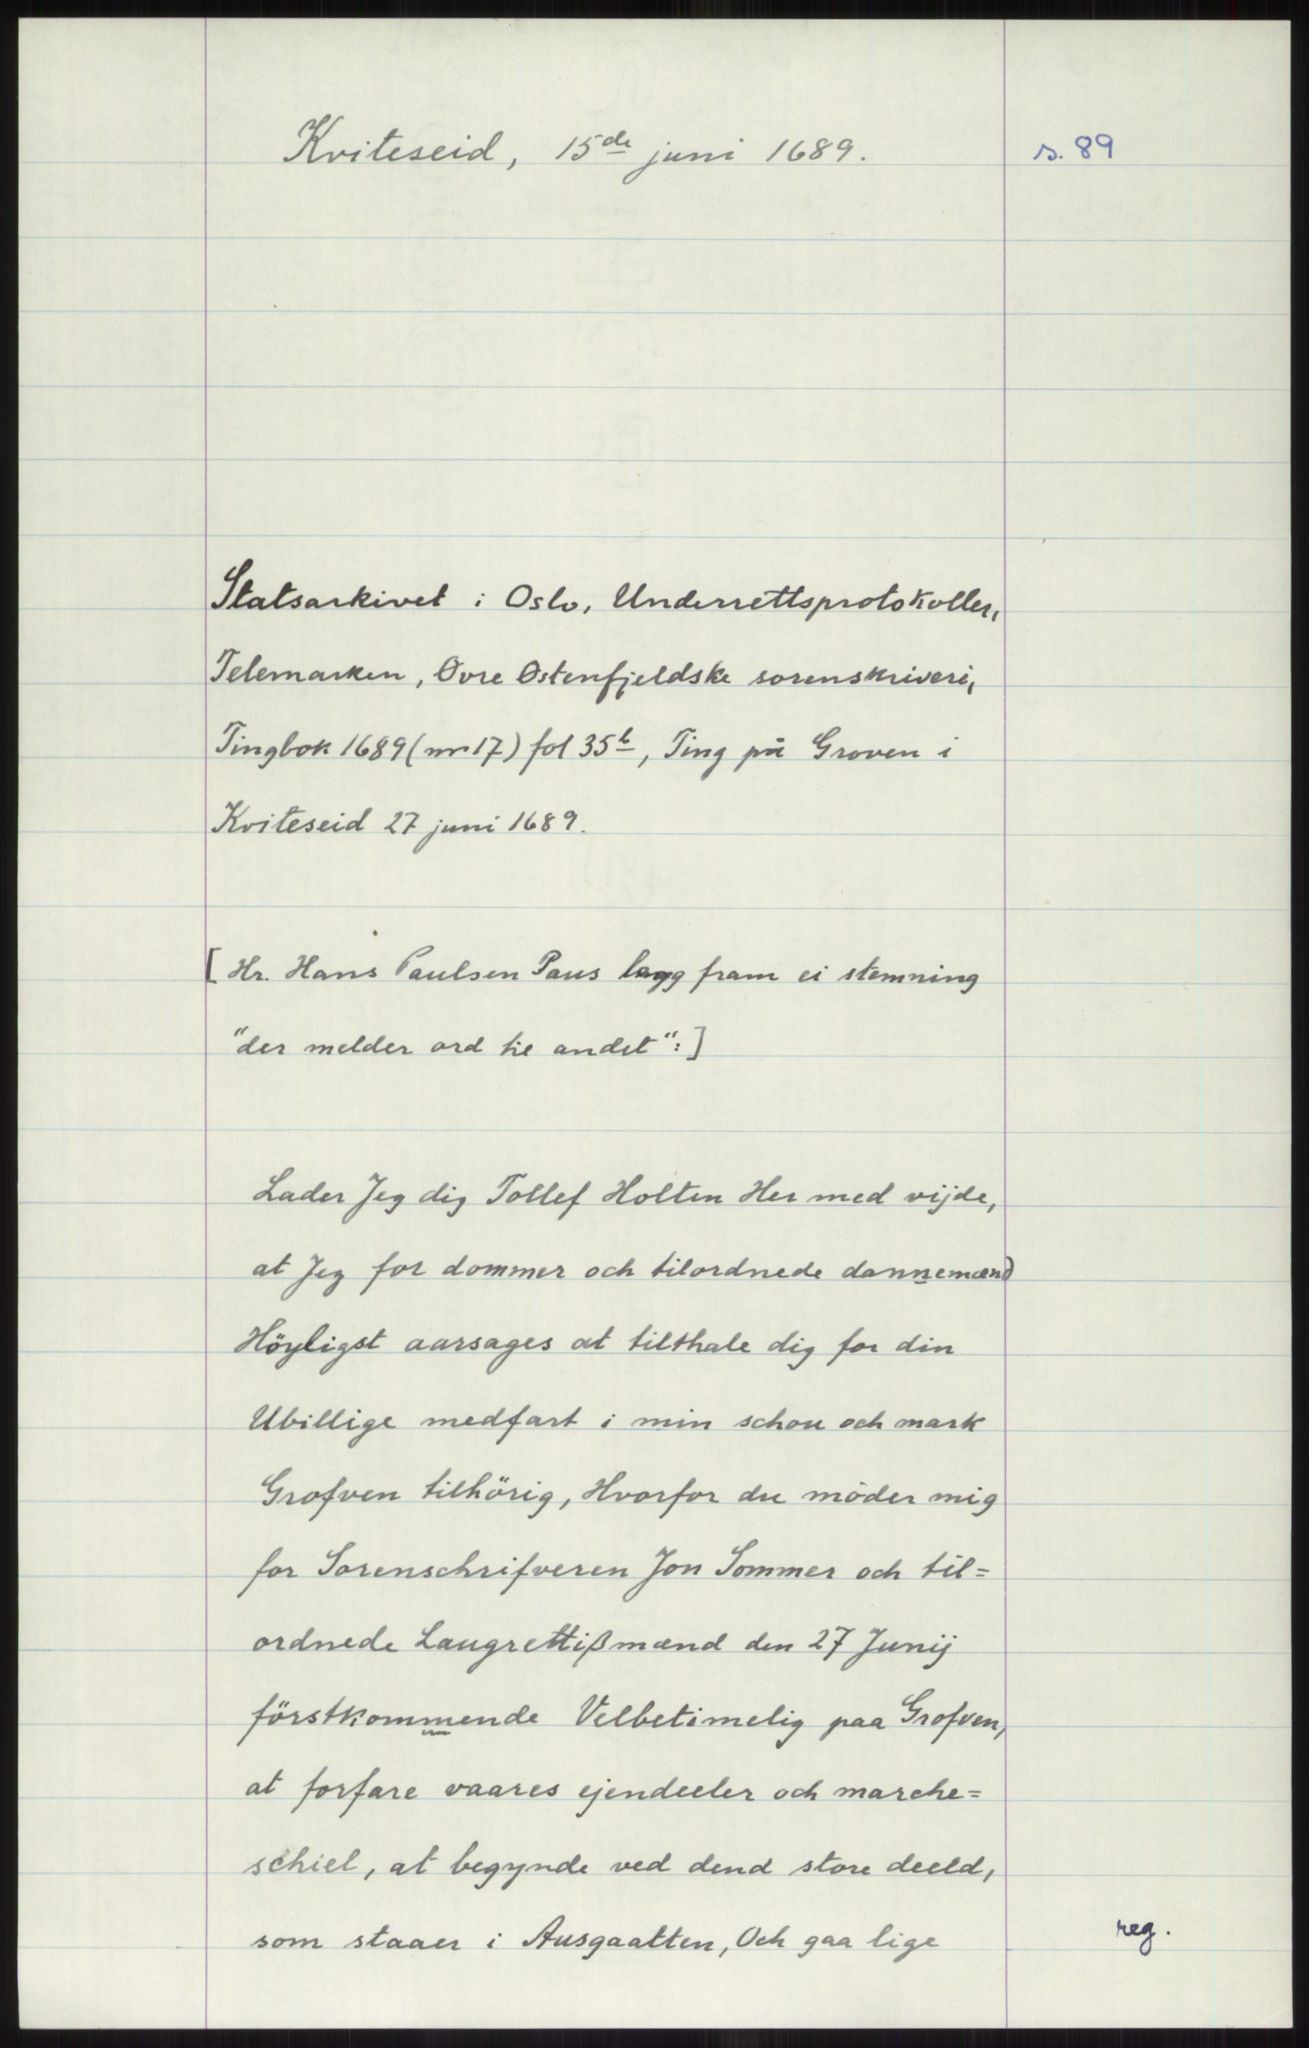 Kviteseid, 15de juni 1689.
s. 89
Statsarkivet i Oslo, Underrettsprotokoller,
Telemarken, Øvre Østenfjeldske sorenskriveri,
Tingbok 1689 (nr 17) fol 35b, Ting på Groven i
Kviteseid 27 juni 1689.
[Hr. Hans Paulsen Paus lagg fram ei stemning
"der melder ord til andet":]
Lader Jeg dig Tollef Holten Her med vijde,
at Jeg for dommer och tilordnede dannemænd
Höyligst aarsages at tilthale dig for din
Ubillige medfart i min schou och mark
Grofven tilhörig, Hvorfor du möder mig
for Sorenschrifveren Jon Sommer och til=
ordnede Laugrettißmænd den 27 Junij
förstkommende Velbetimelig paa Grofven,
at forfare vaares ejendeeler och marche=
schiel, at begynde ved dend store deeld,
som staaer i Ausgaatten, Och gaa lige
reg.